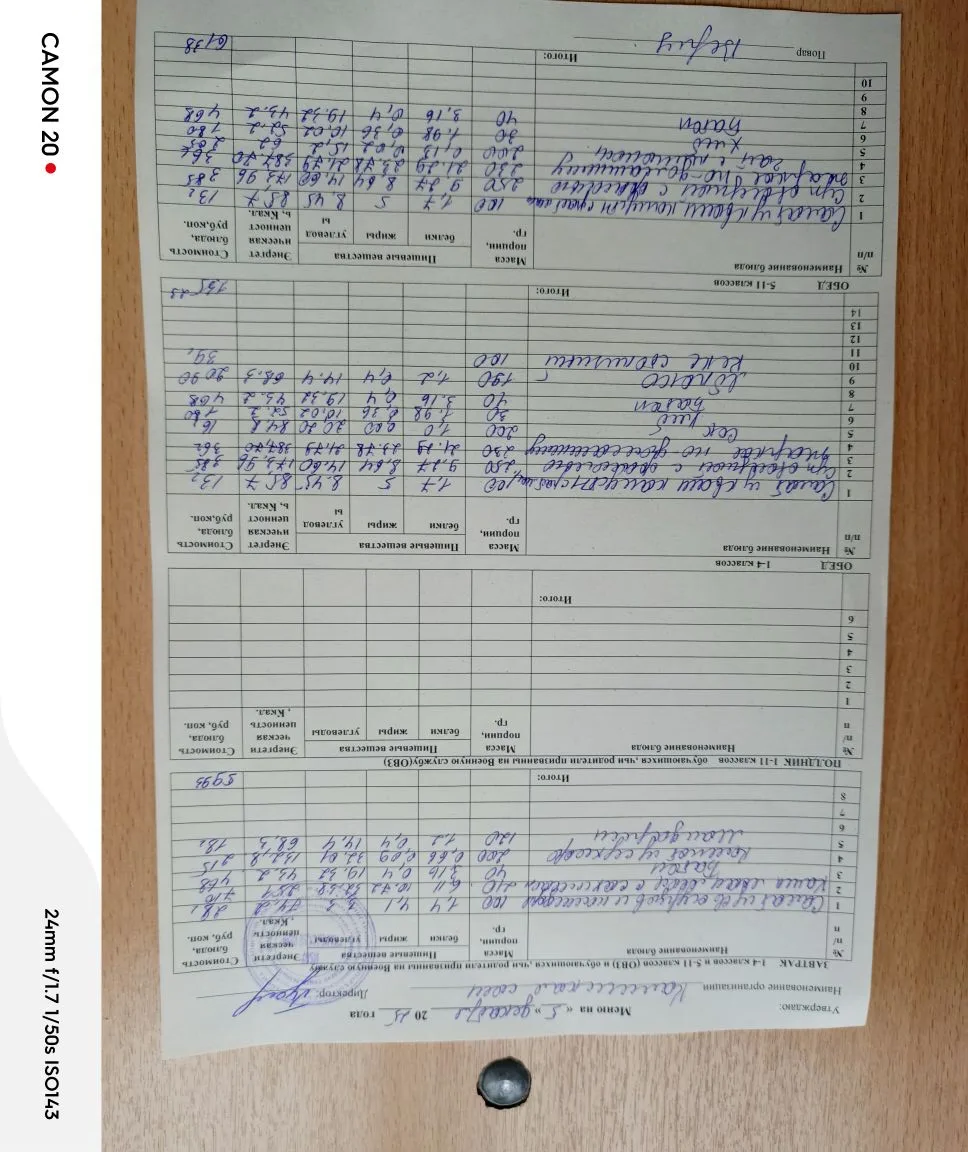 Утверждаю: Меню на « 5 » декабря 2025 года
Наименование организации Директор:
ЗАВТРАК 1-4 классов и 5-11 классов (ОВЗ) и обучающихся ,чьи родители призванны на Военную службу
№ п/п Наименование блюда Масса порции, гр. Пищевые вещества Энергетическая ценность , Ккал. Стоимость блюда, руб, коп.
белки жиры углеводы
1 Салат из св огурцов и помидоров 100 1,4 4,1 74,2
2 Каша 210 6,11 10,72 32,38 251
3 Батон 40 3,16 0,4 19,32 43,2 468
4 Компот из сухофр 200 0,66 0,09 32,01 132,8 215
5 Мандарин 120 1,2 0,4 14,4 68,3
6
7
8
Итого:
ПОЛДНИК 1-11 классов обучающихся ,чьи родители призванны на Военную службу(ОВЗ)
№ п/п Наименование блюда Масса порции, гр. Пищевые вещества Энергетическая ценность , Ккал. Стоимость блюда, руб, коп.
белки жиры углеводы
1
2
3
4
5
6
Итого:
ОБЕД 1-4 классов
№ п/п Наименование блюда Масса порции, гр. Пищевые вещества Энергетическая ценность, Ккал. Стоимость блюда, руб,коп.
белки жиры углеводы
1 Салат из кваш капусты 100 1,7 5 8,45 85,7 132
2 Суп овощной с фасолью 250 9,27 8,64 14,60 173,96 385
3 жаркое по-домашнему 230 21,29 23,78 21,79 387,70 362
4
5 Сок 200 1,0 0,00 20,20 84,8 16
6 Хлеб 30 1,98 0,36 10,02 52,2 180
7 Батон 40 3,16 0,4 19,32 43,2 468
8
9 Яблоко 190 1,2 0,4 14,4 68,3 2090
10 100 39,
11
12
13
14
Итого:
ОБЕД 5-11 классов
№ п/п Наименование блюда Масса порции, гр. Пищевые вещества Энергетическая ценность, Ккал. Стоимость блюда, руб,коп.
белки жиры углеводы
1 Салат из кваш капуст 100 1,7 5 8,45 85,7 132
2 Суп овощной с фасолью 250 9,27 8,64 14,60 173,96 385
3 жаркое по-домашнему 230 21,29 23,78 21,79 387,70 362
4 Чай с лимоном 200 0,13 0,02 15,2 62
5 Хлеб 30 1,98 0,36 10,02 52,2 180
6
7 Батон 40 3,16 0,4 19,32 43,2 468
8
9
10
Итого: 6138
Повар
CAMON 20
24mm f/1.7 1/50s ISO143